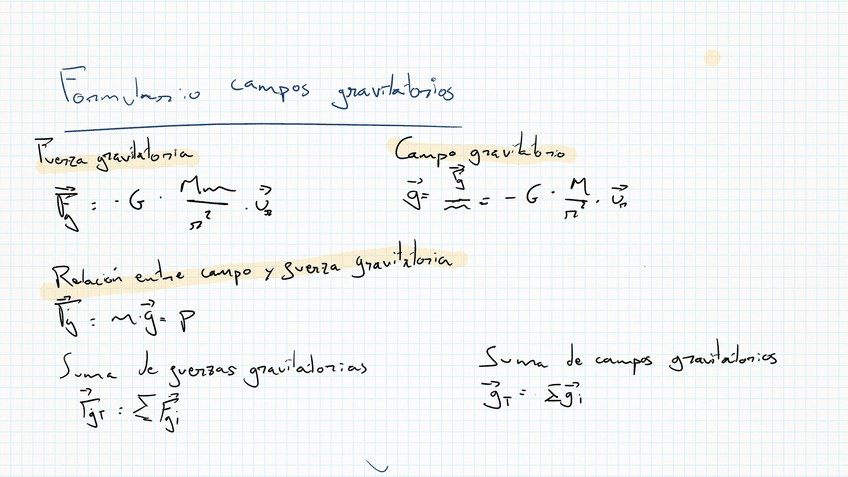 Formulario campos gravitatorios
Fuerza gravitatoria
F⃗g = - G · Mm/r² · u⃗r
Campo gravitatorio
g⃗ = F⃗g/m = - G · M/r² · u⃗r
Relación entre campo y fuerza gravitatoria
F⃗g = m · g⃗ = P
Suma de fuerzas gravitatorias
F⃗gT = ∑ F⃗gi
Suma de campos gravitatorios
g⃗T = ∑ g⃗i